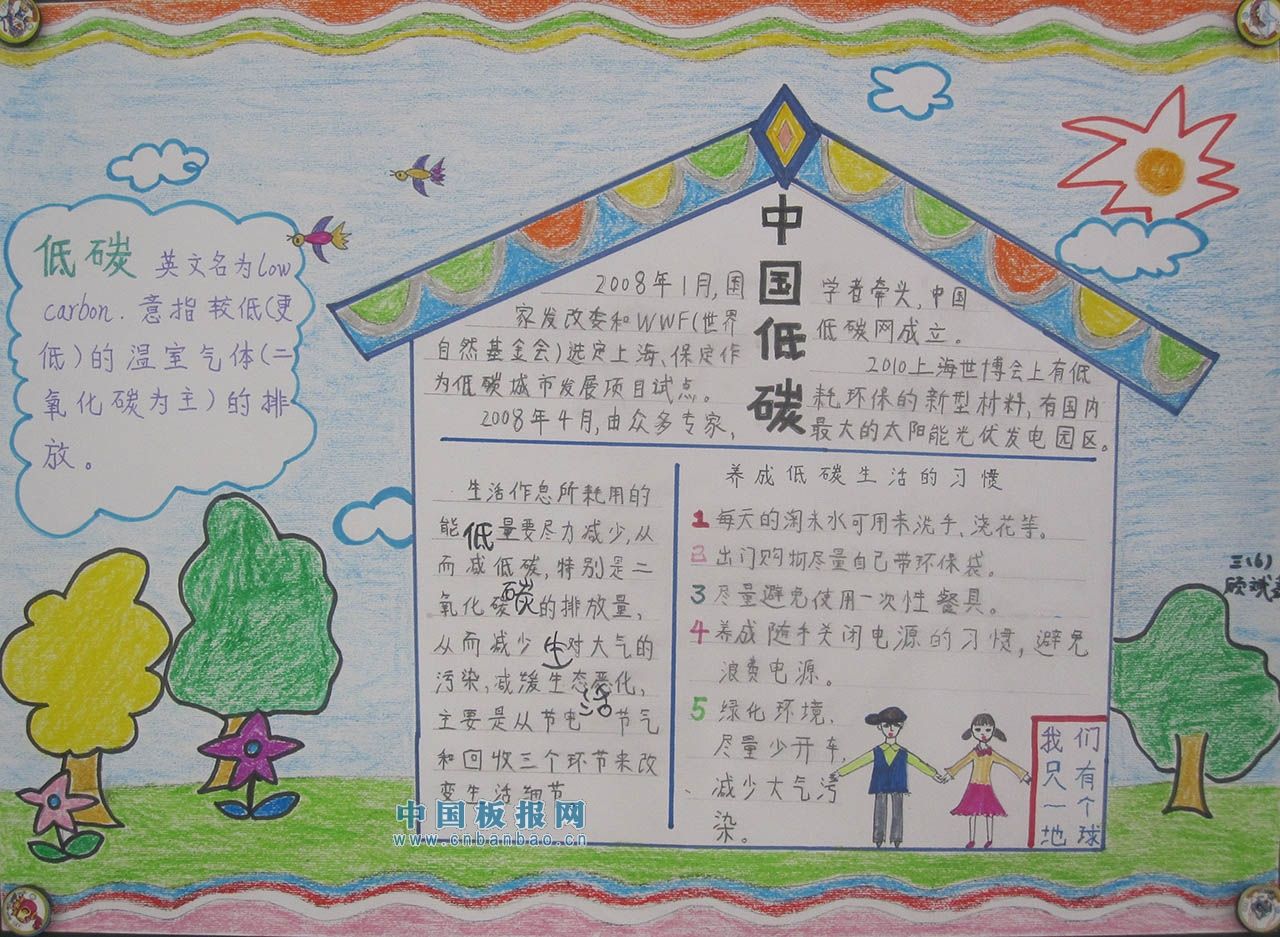 低碳 英文名为low
carbon.意指较低(更
低)的温室气体(二
氧化碳为主)的排
放。
中国低碳
2008年1月,国
家发改委和WWF(世界
自然基金会)选定上海、保定作
为低碳城市发展项目试点。
2008年4月,由众多专家,
学者牵头,中国
低碳网成立。
2010上海世博会上有低
耗环保的新型材料,有国内
最大的太阳能光伏发电园区。
低碳生活
生活作息所耗用的
能量要尽力减少,从
而减低碳,特别是二
氧化碳的排放量,
从而减少对大气的
污染,减缓生态恶化,
主要是从节电节气
和回收三个环节来改
变生活细节
养成低碳生活的习惯
1 每天的淘米水可用来洗手、浇花等。
2 出门购物尽量自己带环保袋。
3 尽量避免使用一次性餐具。
4 养成随手关闭电源的习惯,避免
浪费电源。
5 绿化环境、
尽量少开车,
减少大气污
染。
我们
只有
一个
地球
三(6)
中国板报网
www.cnbanbao.cn